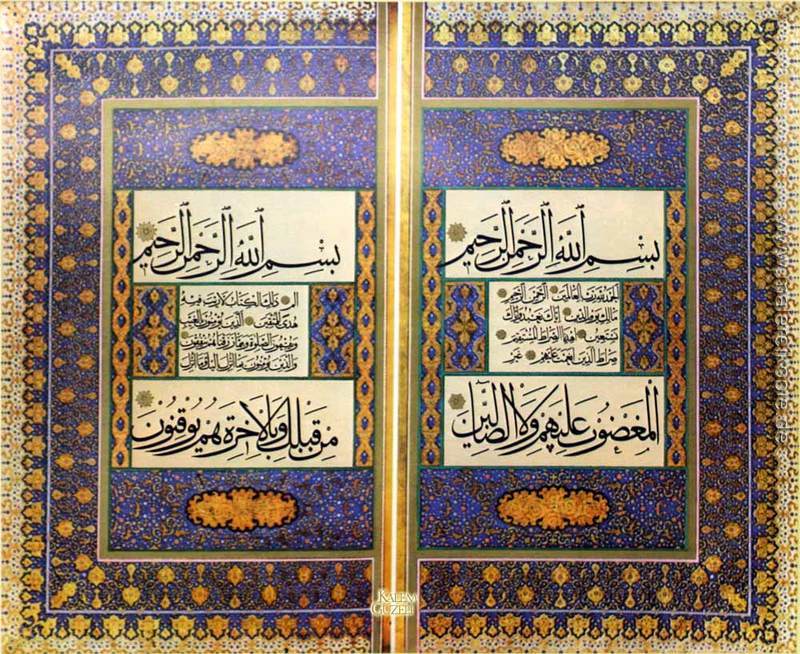 بسم الله الرحمن الرحيم
الحمد لله رب العالمين الرحمن الرحيم
مالك يوم الدين اياك نعبد واياك
نستعين اهدنا الصراط المستقيم
صراط الذين انعمت عليهم غير
المغضوب عليهم ولا الضالين
بسم الله الرحمن الرحيم
الم ذلك الكتاب لا ريب فيه
هدى للمتقين الذين يؤمنون بالغيب
ويقيمون الصلوة ومما رزقناهم ينفقون
والذين يؤمنون بما انزل اليك وما انزل
من قبلك وبالاخرة هم يوقنون
KALEM
GUZELI